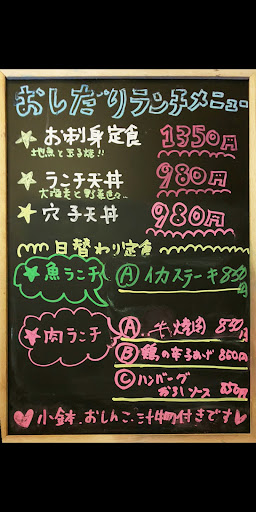 おしだりランチメニュー
お刺身定食 1350円
ランチ天丼 980円
穴子天丼 980円
日替わり定食
魚ランチ Ⓐイカステーキ 850円
肉ランチ Ⓐ 焼 850円
Ⓑ鶏の辛子あげ 850円
Ⓒハンバーグ
からしソース 850円
小鉢.おしんこ.汁物付きです